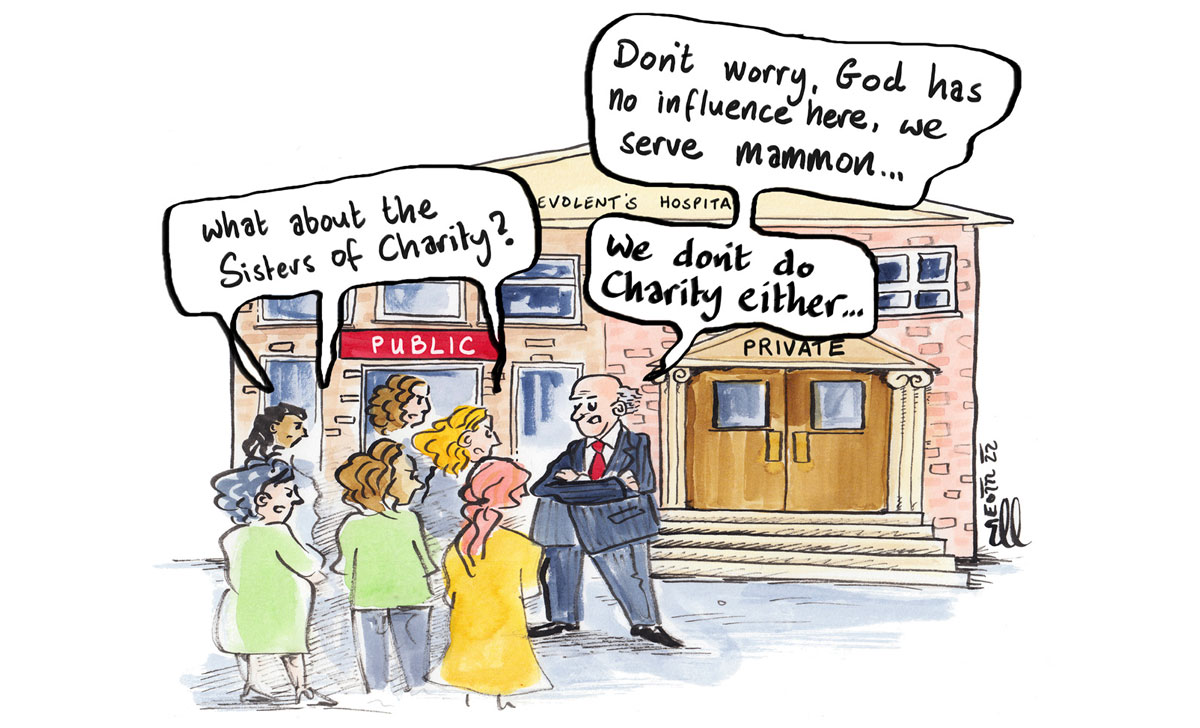 Don't worry, God has
no influence here, we
serve mammon...
EVOLENT'S HOSPITA
what about the
Sisters of Charity?
We don't do
Charity either...
PUBLIC
PRIVATE